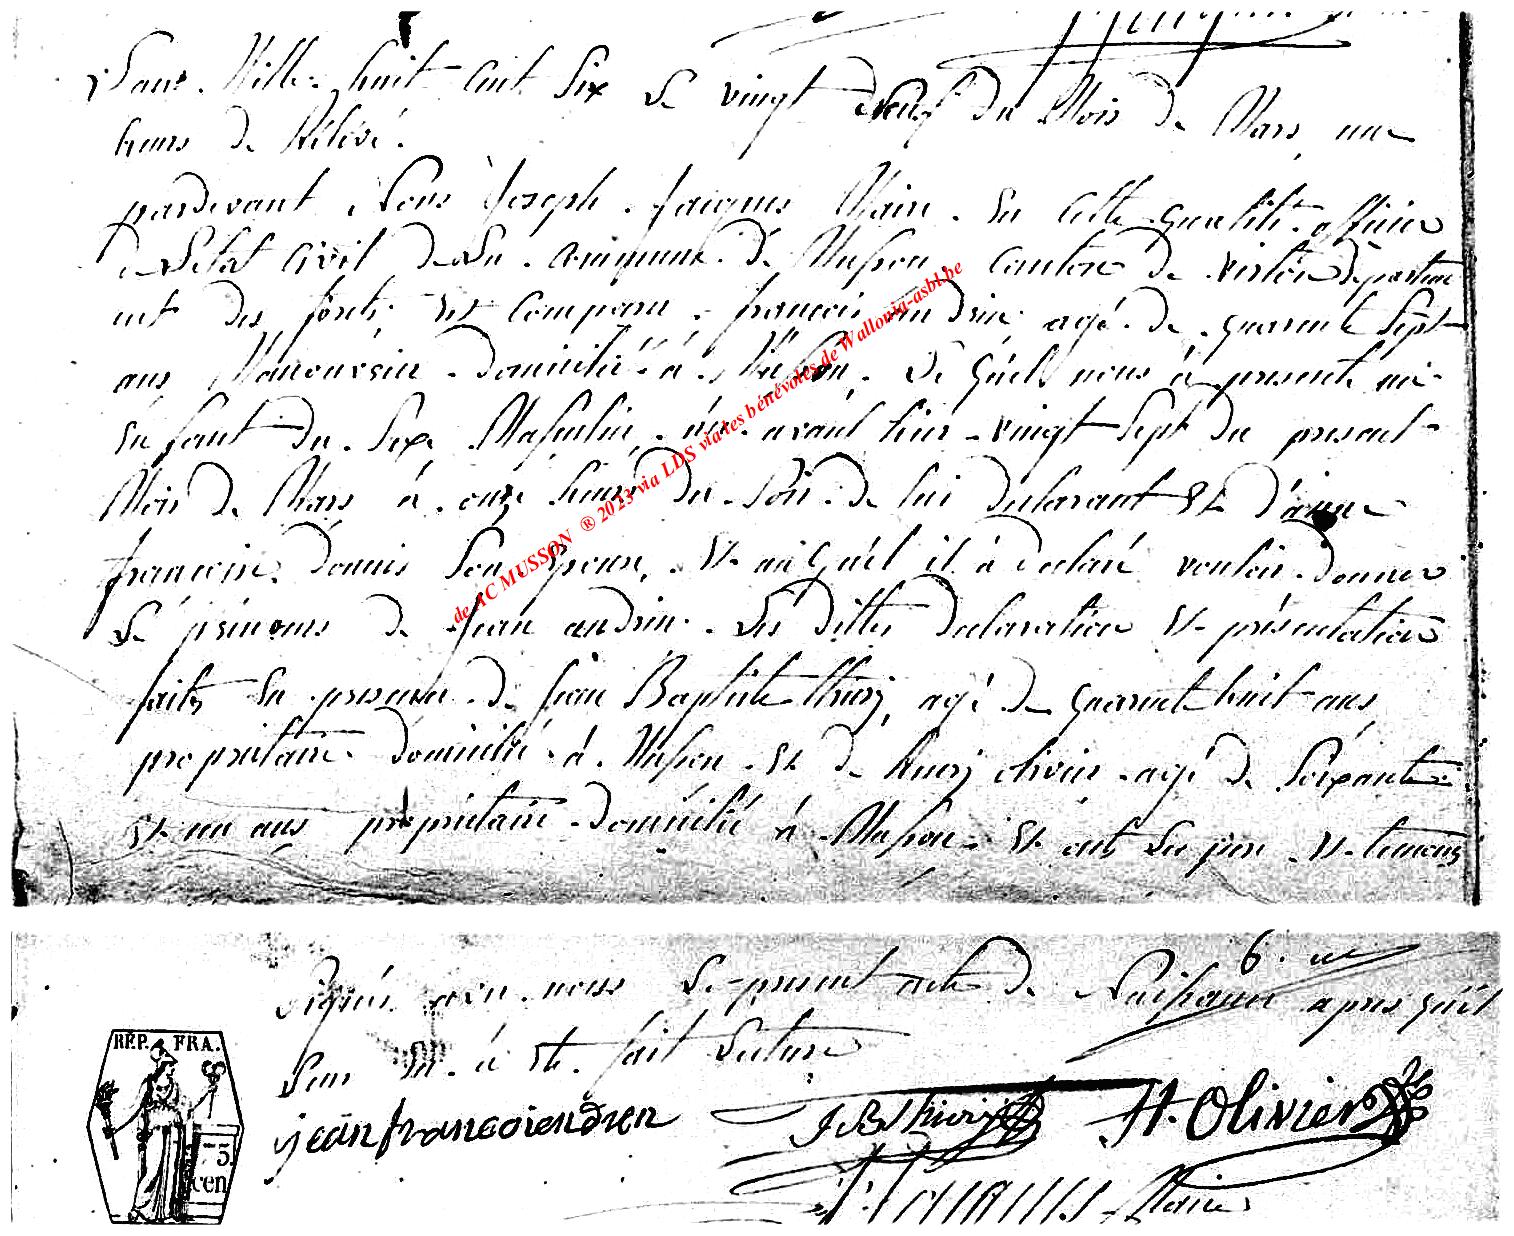 L'an Mille huit cent Six Le vingt neuf du Mois de Mars, une
heure de Rélévé.
pardevant Nous Joseph Jacques Maire En Cette qualité officier
de L'état Civil de La Commune de Musson, Canton de virton départem
ent des forêts, Est Comparu françois andrin agé de quarente Sept
ans Manouvrier Domicilié à Musson. Le quel nous à presenté un
Enfant du Sexe Masculin, né avant hier vingt Sept du present
Mois de Mars à onze heures du Soir de lui declarant Et d'anne
françoise Son Epouse, Et au quel il à declaré vouloir donner
Le prénoms de jean andrin. Les dittes declaration Et présentation
faites En presence de jean Baptiste thiry, agé de quarente huit ans
proprietaire domicilié à Musson Et de henry olivier agé de Soixante
Et un ans proprietaire domicilié à Musson Et ont Les pere Et temoins
6. me
Signés avec nous Le present acte de Naissance apres qu'il
Leur En à Eté fait Lecture
REP. FRA.
75
cen
jean francoiendrien
J B thiry
H. Olivier
J. Jacques Maire
de AC MUSSON ® 2023 via LDS via les bénévoles de Wallonia-asbl.be